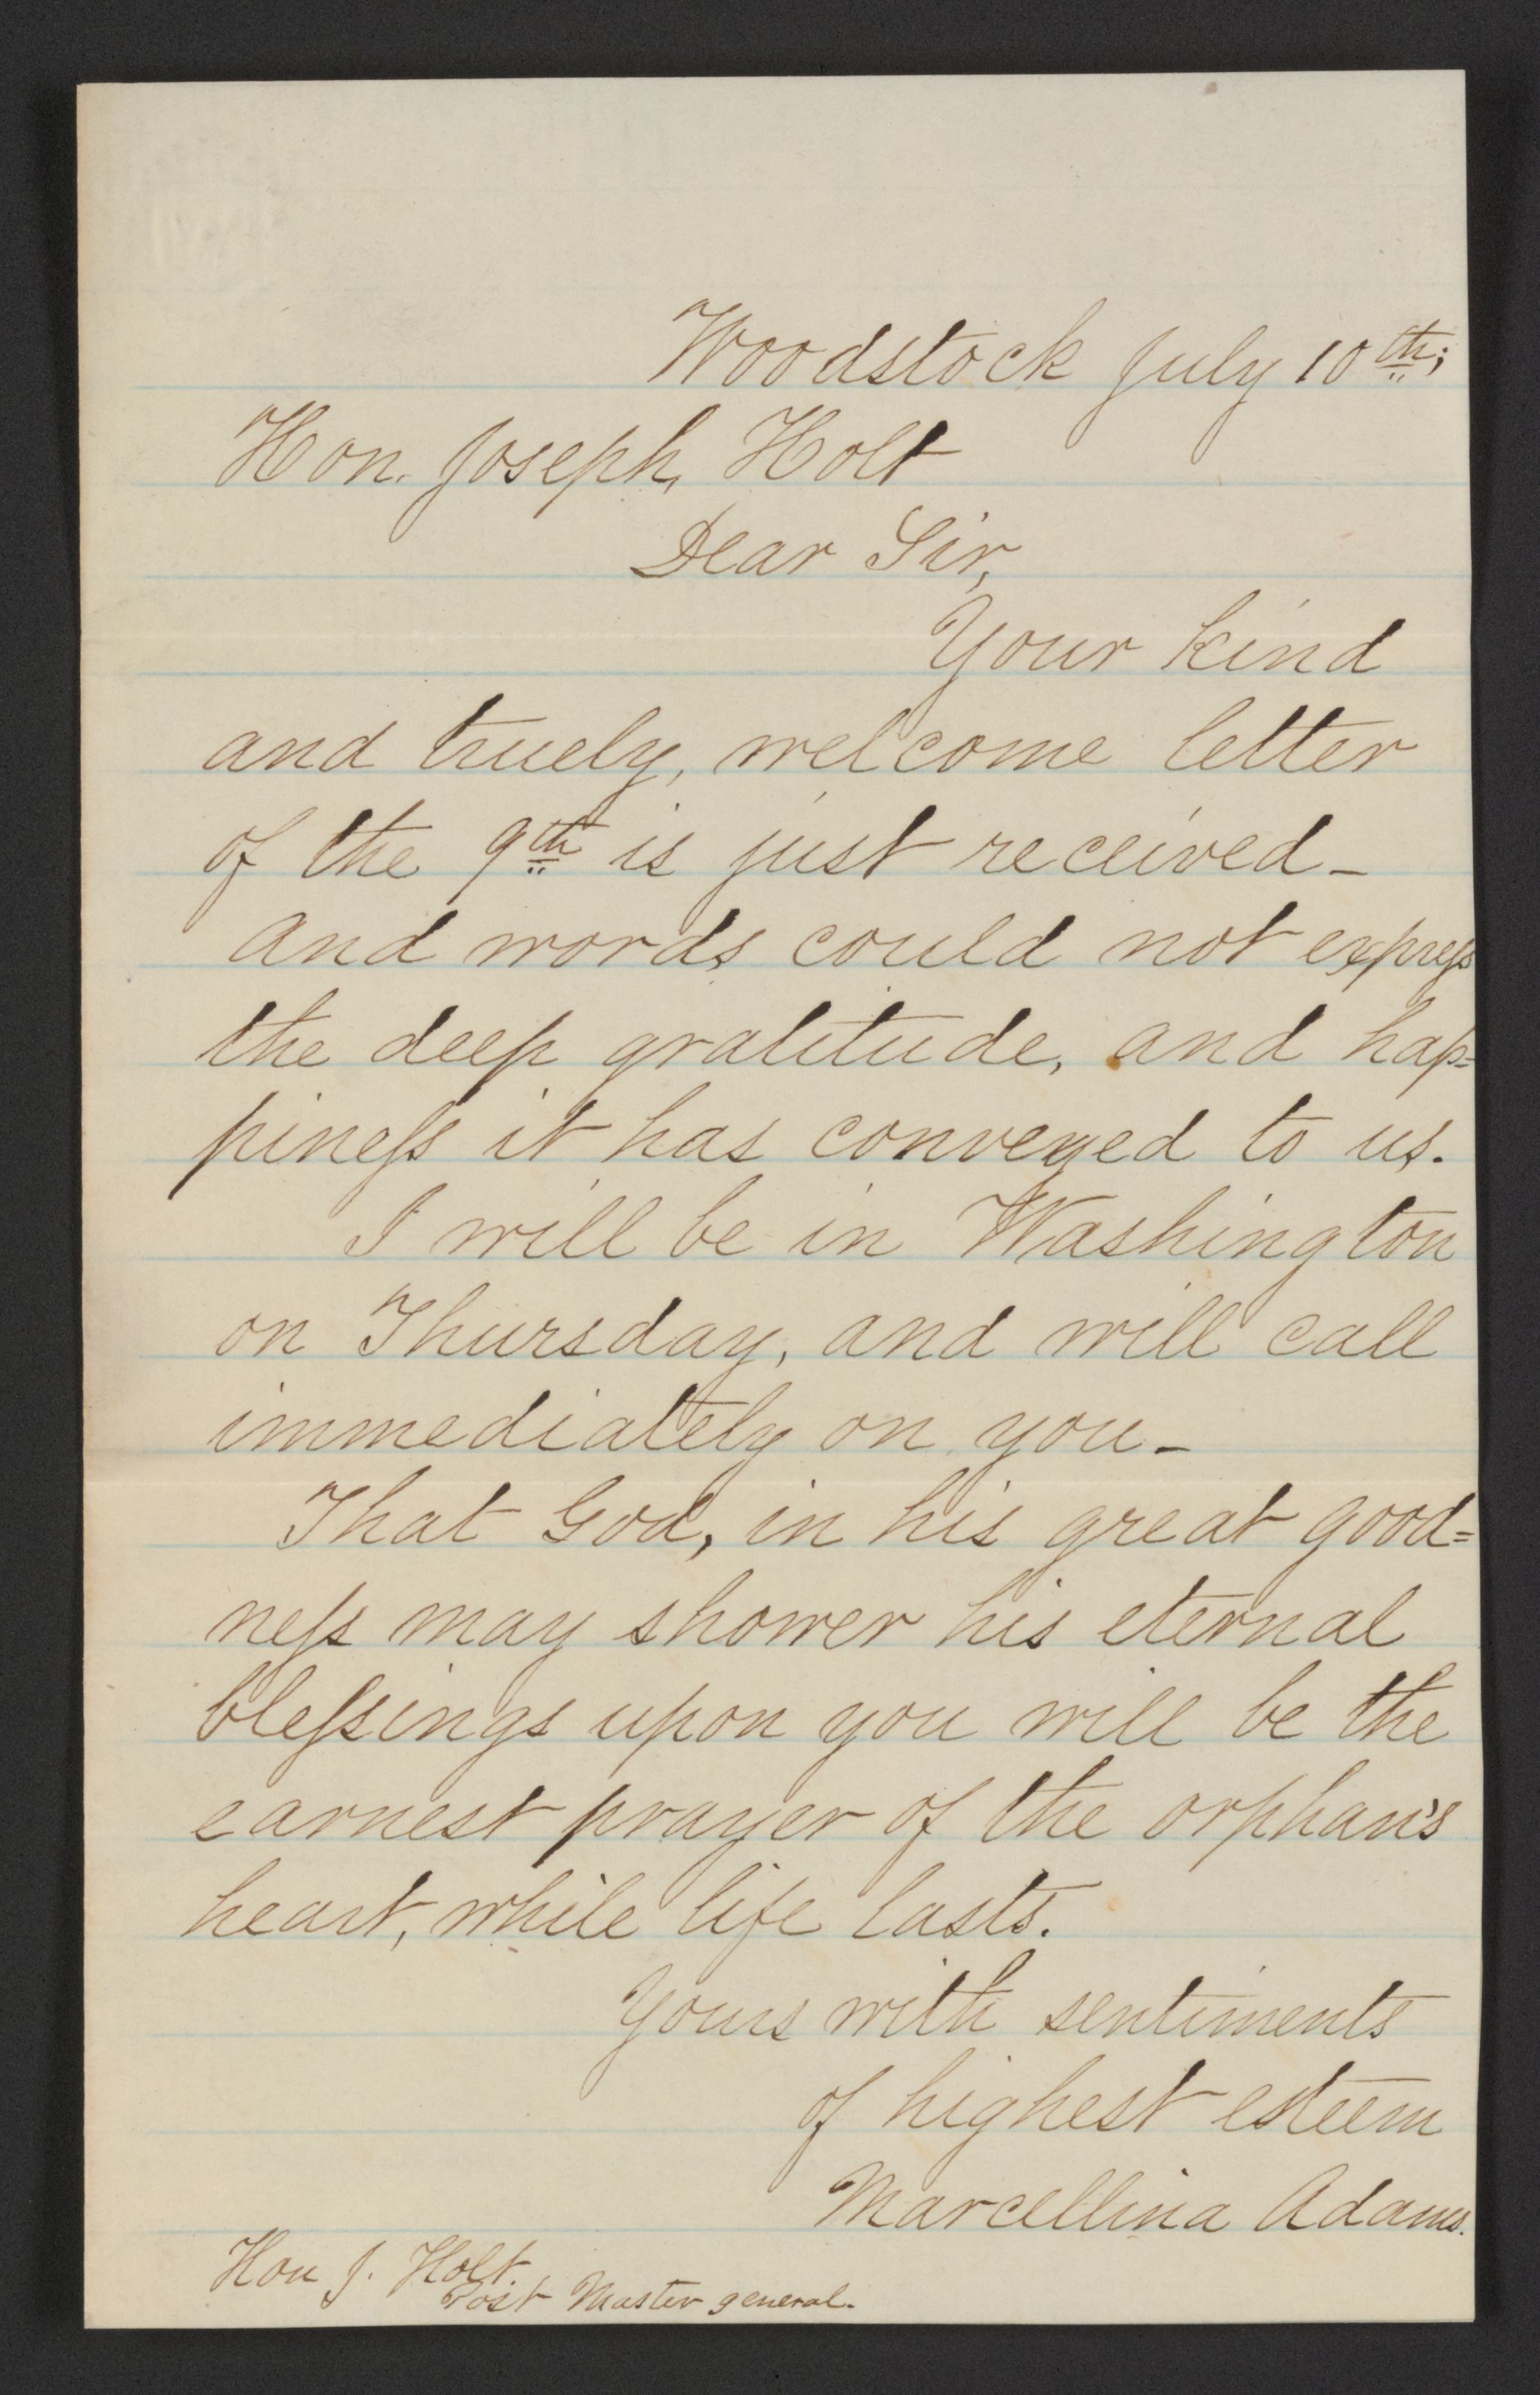 Woodstock July 10th;
Hon. Joseph, Holt
Dear Sir,
Your kind
and truely, welcome letter
of the 9th is just received_
and words could not express
the deep gratitude, and hap=
piness it has conveyed to us.
I will be in Washington
on Thursday, and will call
immediately on you_
That God, in his great good=
ness may shower his eternal
blessings upon you will be the
earnest prayer of the orphan's
heart, while life lasts.
Yours with sentiments
of highest esteem
Marcellina Adams.
Hon J. Holt.
Post Master general.